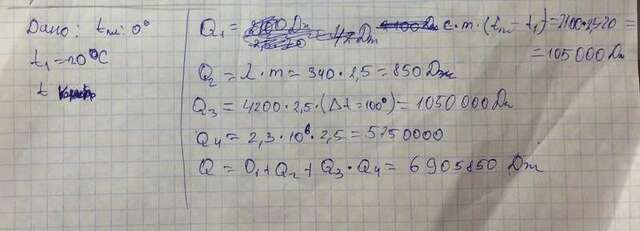 Дано: tпл: 0°
t₁ = -20°C
t
Q₁ = c·m·(tпл - t₁) = 2100·2,5·20 =
= 105000 Дж
Q₂ = λ·m = 340·2,5 = 850 Дж
Q₃ = 4200·2,5·(Δt = 100°) = 1050000 Дж
Q₄ = 2,3·10⁶·2,5 = 5750000
Q = Q₁ + Q₂ + Q₃ · Q₄ = 6905850 Дж